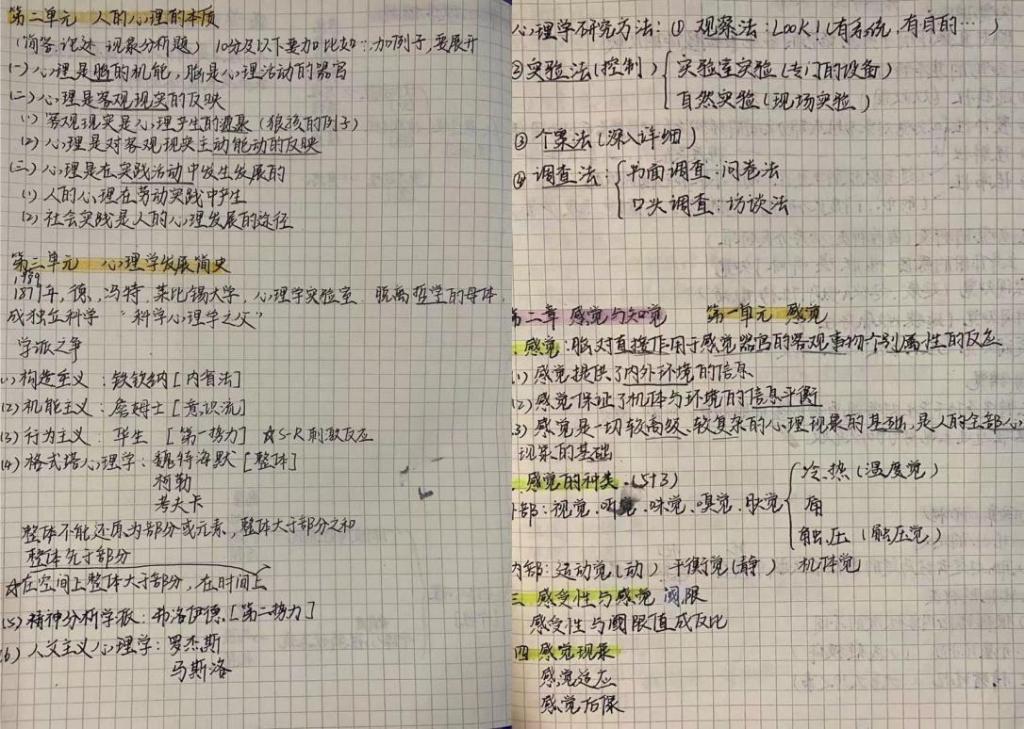 第二单元 人的心理的本质
(简答.论述.现象分析题) 10分及以下要加比如…加例子,要展开
(一)心理是脑的机能,脑是心理活动的器官
(二)心理是客观现实的反映
(1) 客观现实是心理产生的源泉(狼孩的例子)
(2) 心理是对客观现实主动能动的反映
(三)心理是在实践活动中发生发展的
(1) 人的心理在劳动实践中产生
(2) 社会实践是人的心理发展的途径
第三单元 心理学发展简史
1879
1879年,德,冯特,莱比锡大学,心理学实验室 脱离哲学的母体,
成独立科学 "科学心理学之父"
学派之争
(1)构造主义:铁钦纳[内省法]
(2)机能主义:詹姆士[意识流]
(3)行为主义:华生 [第一势力] ☆S-R刺激反应
(4)格式塔心理学:魏特海默[整体]
柯勒
考夫卡
整体不能还原为部分或元素,整体大于部分之和
整体先于部分
☆在空间上整体大于部分,在时间上
(5)精神分析学派:弗洛伊德[第二势力]
(6)人文主义心理学:罗杰斯
马斯洛
心理学研究方法:① 观察法:LOOK!(有系统,有目的… )
②实验法(控制){实验室实验(专门的设备)
自然实验(现场实验)
③ 个案法(深入详细)
④ 调查法:{书面调查:问卷法
口头调查:访谈法
第二章 感觉与知觉 第一单元 感觉
感觉:脑对直接作用于感觉器官的客观事物个别属性的反应
(1)感觉提供了内外环境的信息
(2)感觉保证了机体与环境的信息平衡
(3)感觉是一切较高级、较复杂的心理现象的基础,是人的全部心
现象的基础
感觉的种类.(5+3)
外部:视觉.听觉.味觉.嗅觉.肤觉{冷.热(温度觉)
痛
触.压(触压觉)
内部:运动觉(动) 平衡觉(静) 机体觉
三 感受性与感觉 阈限
感受性与阈限值成反比
四 感觉现象
感觉适应
感觉后像